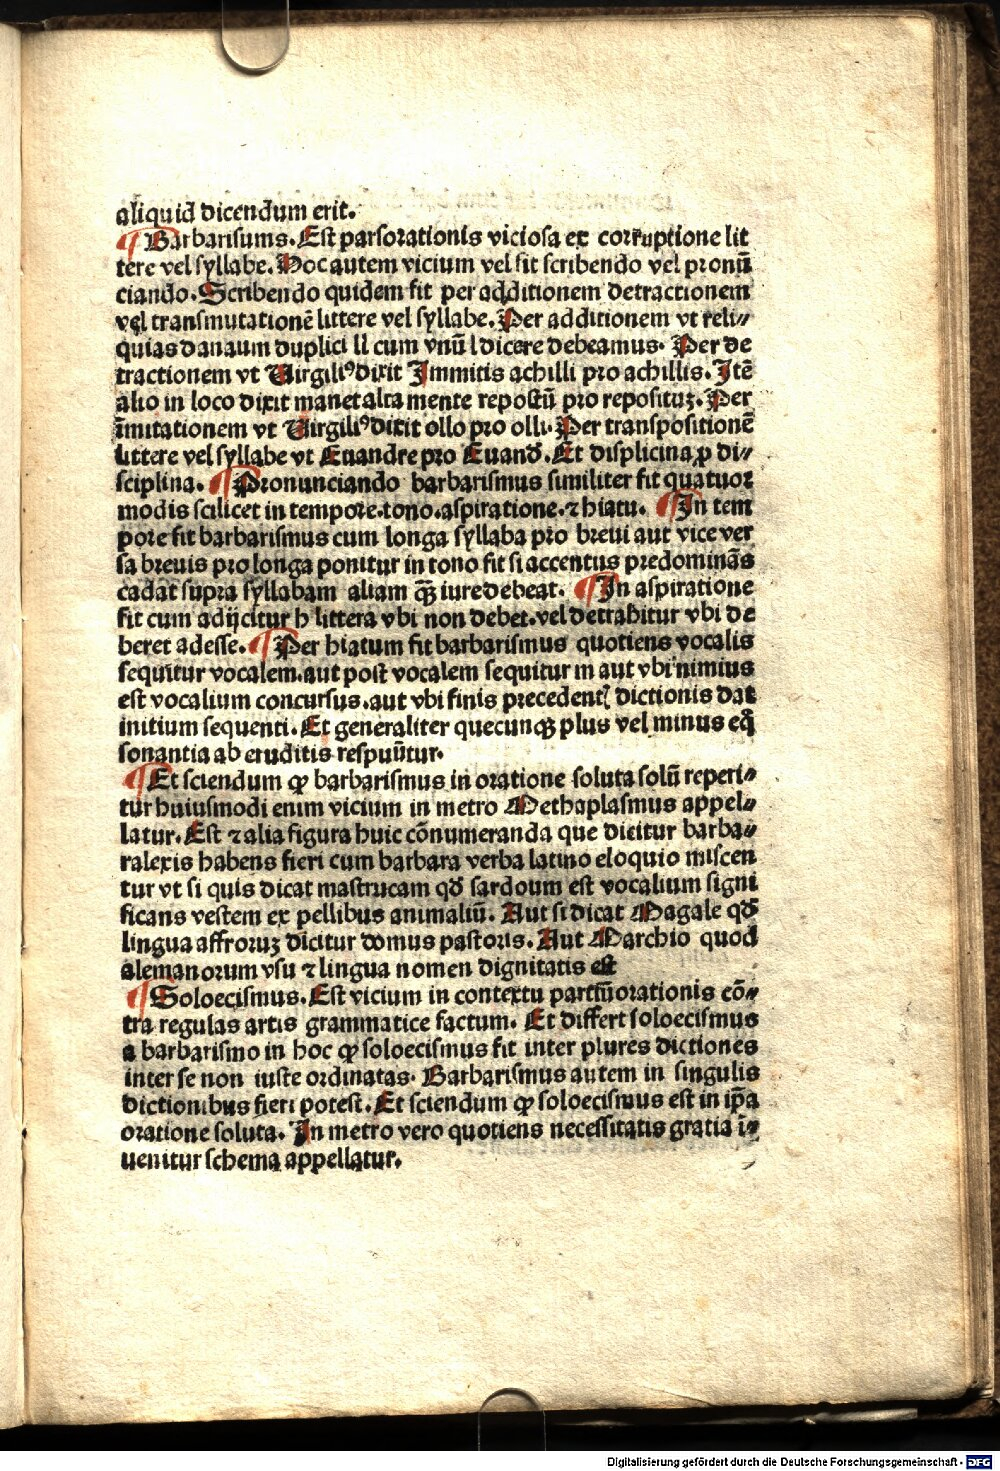 aliquid dicendum erit.
¶ Barbarisums. Est parsorationis viciosa ex corruptione lit
tere vel syllabe. Hoc autem vicium vel fit scribendo vel pronū
ciando. Scribendo quidem fit per additionem detractionem
vel transmutationē littere vel syllabe. Per additionem vt reli⸗
quias danaum duplici ll cum vnū l dicere debeamus. Per de
tractionem vt Virgiliꝰ dixit Immitis achilli pro achillis. Itē
alio in loco dixit manet alta mente repostū pro reposituꝫ. Per
īmitationem vt Virgiliꝰ dixit ollo pro olli. Per transpositionē
littere vel syllabe vt Euandre pro Euand᷑. Et displicina ꝓ di⸗
sciplina. ¶ Pronunciando barbarismus similiter fit quatuor
modis scilicet in tempore. tono. aspiratione. ⁊ hiatu. ¶ In tem
pore fit barbarismus cum longa syllaba pro breui aut vice ver
sa breuis pro longa ponitur in tono fit si accentus predominās
cadat supra syllabam aliam qȝ̄ iure debeat. ¶ In aspiratione
fit cum adijcitur h littera vbi non debet. vel detrahitur vbi de
beret adesse. ¶ Per hiatum fit barbarismus quotiens vocalis
sequitur vocalem. aut post vocalem sequitur m aut vbi nimius
est vocalium concursus. aut vbi finis precedentꝭ dictionis dat
initium sequenti. Et generaliter quecunqȝ plus vel minus eq̄
sonantia ab eruditis respuūtur.
¶ Et sciendum ꝙ barbarismus in oratione soluta solū reperi⸗
tur huiusmodi enim vicium in metro Methaplasmus appel⸗
latur. Est ⁊ alia figura huic cōnumeranda que dicitur barba⸗
ralexis habens fieri cum barbara verba latino eloquio miscen
tur vt si quis dicat mastrucam qd᷑ sardoum est vocalium signi
ficans vestem ex pellibus animaliū. Aut si dicat Magale qd᷑
lingua affroruꝫ dicitur domus pastoris. Aut Marchio quod
alemanorum vsu ⁊ lingua nomen dignitatis est
¶ Soloecismus. Est vicium in contextu partiū orationis cō⸗
tra regulas artis grammatice factum. Et differt soloecismus
a barbarismo in hoc ꝙ soloecismus fit inter plures dictiones
inter se non iuste ordinatas. Barbarismus autem in singulis
dictionibus fieri potest. Et sciendum ꝙ soloecismus est in ip̄a
oratione soluta. In metro vero quotiens necessitatis gratia ī⸗
uenitur schema appellatur.
Digitalisierung gefördert durch die Deutsche Forschungsgemeinschaft - DFG